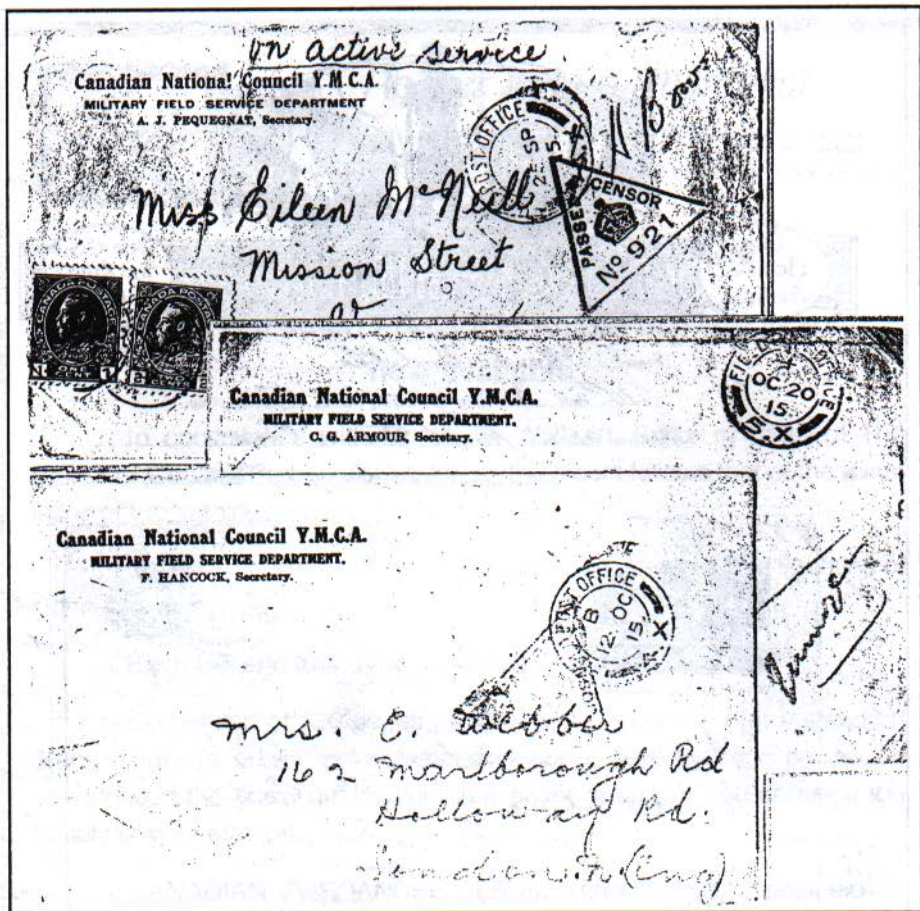 on active service
Canadian National Council Y.M.C.A.
MILITARY FIELD SERVICE DEPARTMENT
A. J. PEQUEGNAT, Secretary.
POST OFFICE
SP
15
PASSED
CENSOR
No 921
Miss Eileen McNeill
Mission Street
CANADA POSTAGE
Canadian National Council Y.M.C.A.
MILITARY FIELD SERVICE DEPARTMENT.
C. G. ARMOUR, Secretary.
OC 20
15
5.X
Canadian National Council Y.M.C.A.
MILITARY FIELD SERVICE DEPARTMENT.
F. HANCOCK, Secretary.
POST OFFICE
B
12 OC
15
X
Mrs. E. Webber
162 Marlborough Rd
Holloway Rd.
London. N (Eng)